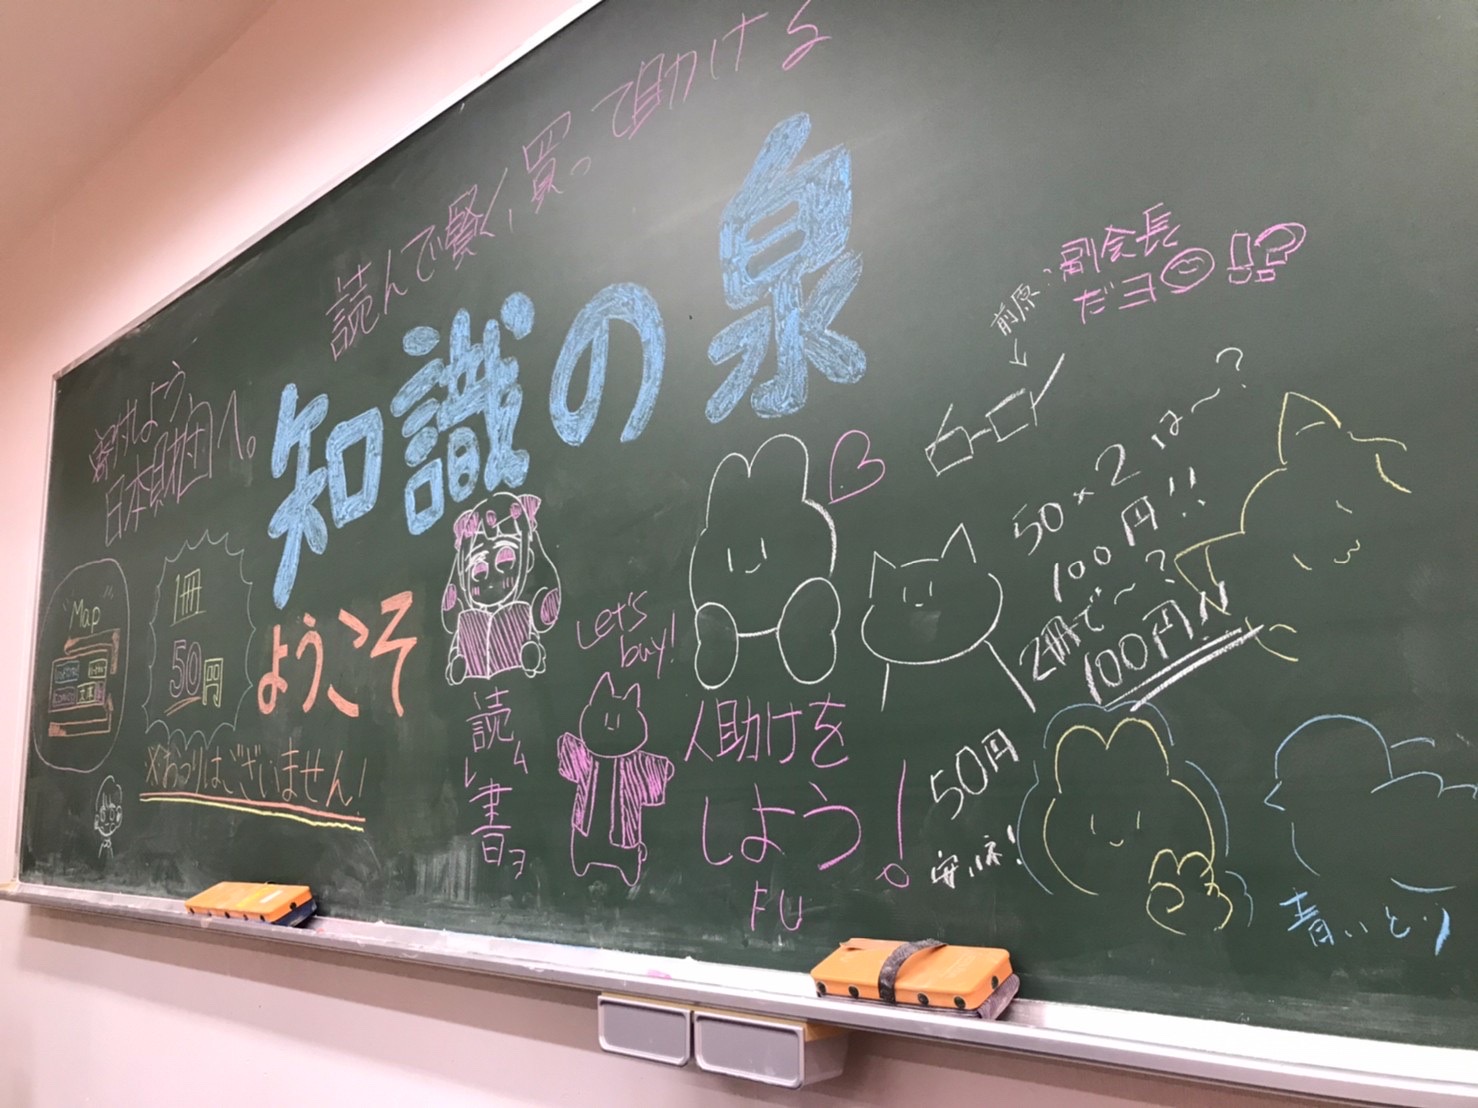 読んで賢く、買って助ける
知識の泉
ようこそ
寄付しよう
日本財団へ。
Map
文庫
1冊
50円
※おつりはございません!
Let's
buy!
読ム
レ書ヨ
人助けを
しよう!
前原:副会長
だヨ!?
50×2は〜?
100円!!
2冊で〜?
100円!!
50円
安いネ!
青いとり